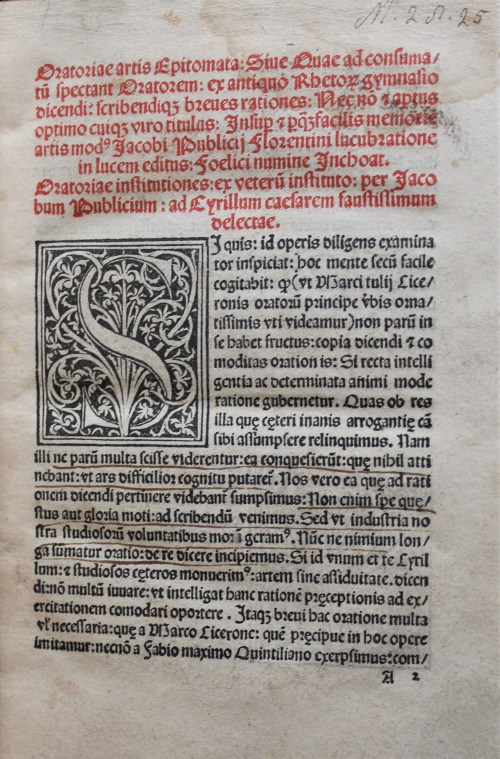 M. 2. 8. 25
Oratoriae artis Epitomata: Siue Quae ad consuma/
tū spectant Oratorem: ex antiquo Rhetoꝝ gymnasio
dicendi: scribendiqꝫ breues rationes: Necnō ⁊ aptus
optimo cuiqꝫ viro titulus: Insuꝑ ⁊ ꝑqꝫfacilis memoriae
artis modꝰ Jacobi Publicij Florentini lucubratione
in lucem editus: Foelici numine Inchoat.
Oratoriae institutiones: ex veterū instituto: per Jaco
bum Publicium: ad Cyrillum caesarem faustissimum
delectae.
SI quis: id operis diligens examina
tor inspiciat: hoc mente secū facile
cogitabit: ꝙ (vt Marci tulij Cice/
ronis oratorū principe v̄bis orna/
tissimis vti videamur) non parū in
se habet fructus: copia dicendi ⁊ co
moditas oration is: Si recta intelli
gentia ac determinata animi mode
ratione gubernetur. Quas ob res
illa quę cęteri inanis arrogantię cā
sibi assumpsere relinquimus. Nam
illi ne parū multa scisse viderentur: ea conquesierūt: quę nihil atti
nebant: vt ars difficilior cognitu putareť. Nos vero ea quę ad rati
onem dicendi pertinere videbant̄ sumpsimus: Non enim spe quę/
stus aut gloria moti: ad scribendū venimus. Sed vt industria no
stra studiosoꝝ voluntatibus moꝝ geramꝰ. Nūc ne nimium lon/
ga sumatur oratio: de re dicere incipiemus. Si id vnum et te Cyril
lum: ⁊ studiosos cęteros monuerimꝰ: artem sine assiduitate. dicen
di: nō multū iuuare: vt intelligat hanc rationē pręceptionis ad ex/
ercitationem comodari oportere. Itaqꝫ breui hac oratione multa
vľ necessaria: quę a Marco Cicerone: quē pręcipue in hoc opere
imitamur: necnō a Fabio maximo Quintiliano exerpsimus: com/
A 2